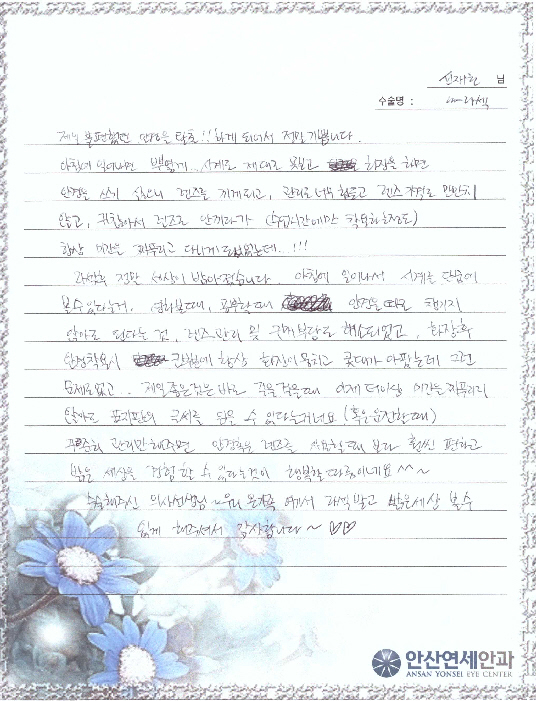 님
수술명 : 라섹
제일 불편했던 안경을 탈출!! 하게 되어서 정말 기쁩니다.
아침에 일어나면 뿌옇게.. 시계도 제대로 못보고 화장을 하면
안경을 쓰기 싫으니 렌즈를 끼게되고, 관리도 너무 힘들고 렌즈 가격도 만만치
않고, 귀찮아서 렌즈도 안끼다가 (수업시간에만 착용하는정도)
항상 미간을 찌푸리고 다니게 되었는데...!!!
라섹후 정말 세상이 밝아졌습니다. 아침에 일어나서 시계를 단숨에
볼수있다는거. 영화볼때, 공부할때 안경을 따로 챙기지
않아도 된다는 것, 렌즈관리 및 구매부담도 해소되었고, 화장후
안경착용시 콧받침에 항상 화장이 뭉치고 콧대가 아팠는데 그런
문제도없고.. 제일좋은것은 바로 길을걸을때 이제 더이상 미간을 찌푸리지
않아도 표지판의 글씨를 읽을 수 있다는거네요 (혹은 운전할때)
꾸준히 관리만해주면 안경이나 렌즈를 사용할때 보다 훨씬 편하고
밝은 세상을 경험할 수 있다는것이 행복할 따름이네요 ^^~
수술해주신 의사선생님 에게서 라섹받고 밝은세상 볼수
있게 해주셔서 감사합니다~ ♡♡
안산연세안과
ANSAN YONSEI EYE CENTER